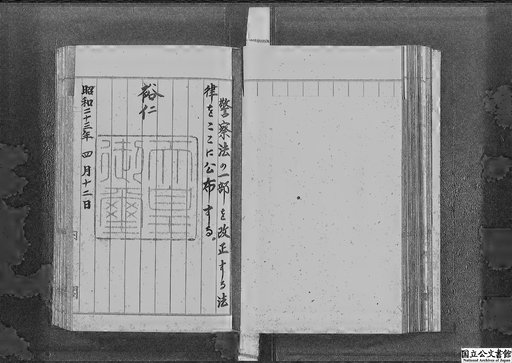 警察法の一部を改正する法
律をここに公布する。
裕仁
天皇
御璽
昭和二十三年四月十二日
内閣
国立公文書館
National Archives of Japan